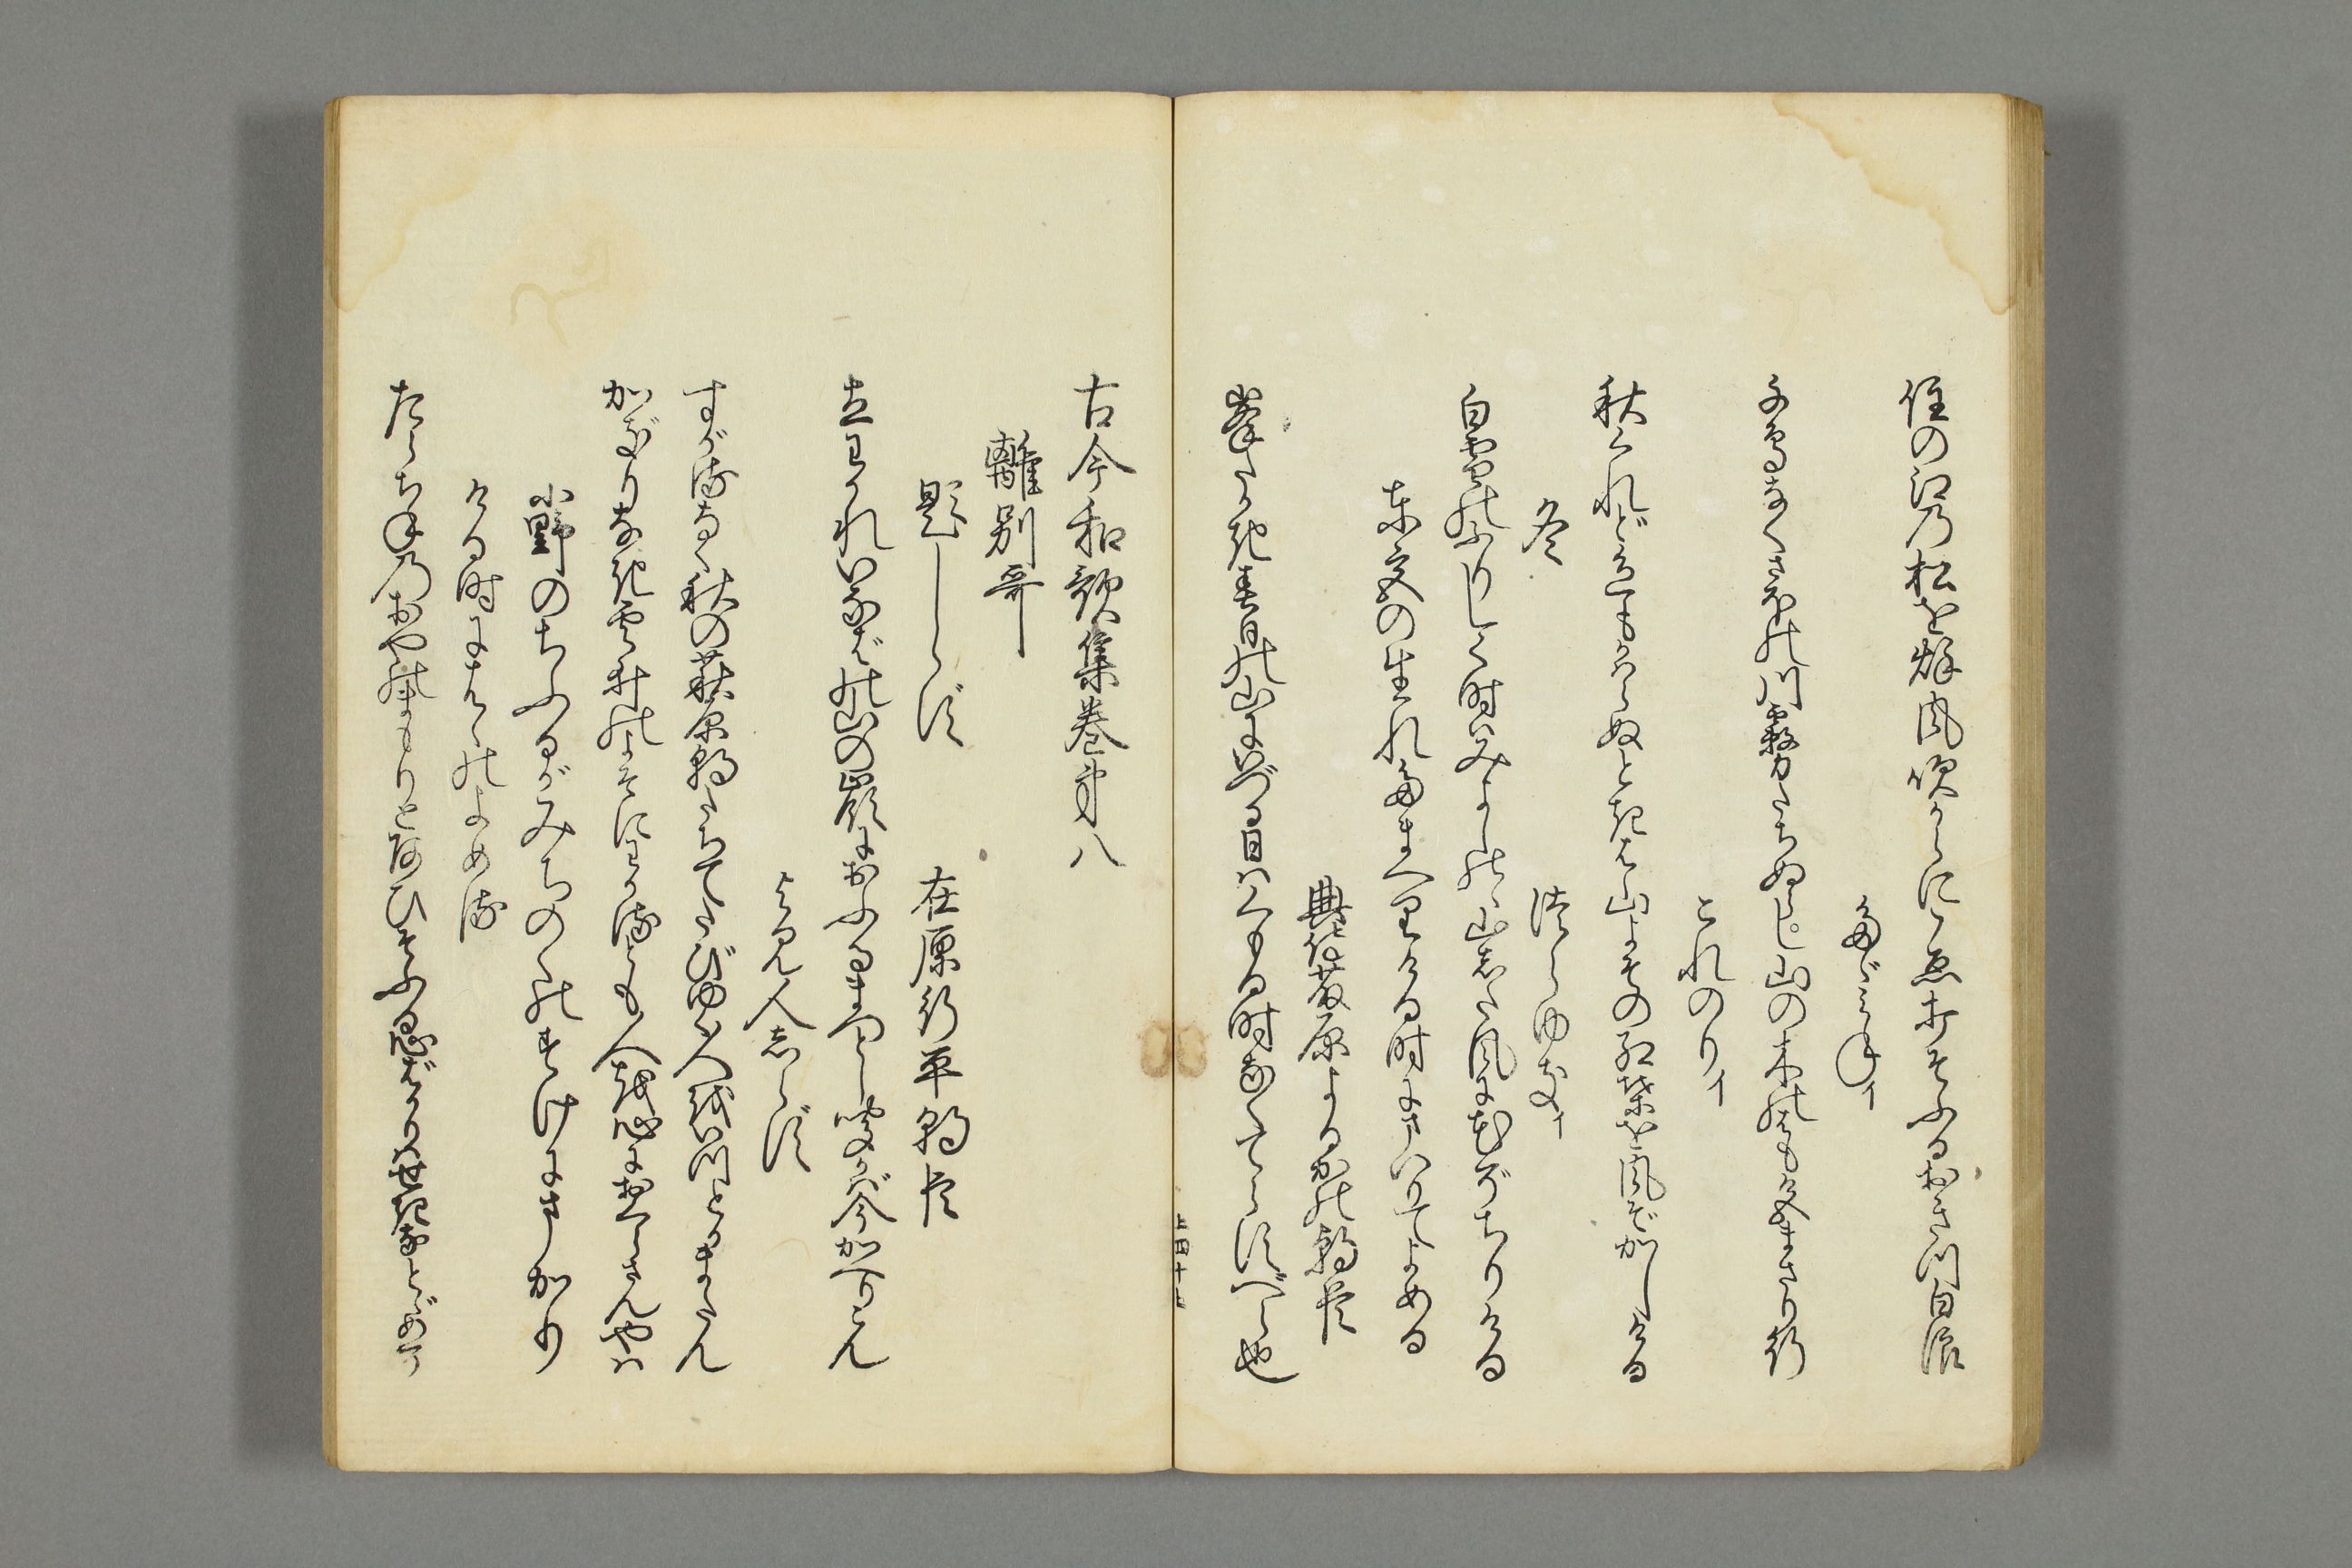 住の江乃松を秋風吹からにこゑ打そふるおきつ白浪
たゞみねイ
千鳥なくさほの川霧たちぬらし山の木のはも色まさり行
これのりイ
秋くれど色もかはらぬときは山よその紅葉を風ぞかしける
冬
つらゆきイ
白雪のふりしく時はみよしのゝ山した風に花ぞちりける
東宮の生れたまへりける時にまいりてよめる
典侍藤原よるかの朝臣
峯たかき春日の山にいづる日はくもる時なくてらすべら也
上四十七
古今和歌集巻第八
離別哥
題しらず
在原行平朝臣
立わかれいなばの山の嶺におふるまつとし聞かば今かへりこん
よみ人しらず
すがるなく秋の萩原朝たちてたびゆく人をいつとかまたん
かぎりなき雲井のよそにわかるとも人を心におくらさんやは
小野のちふるがみちのくのすけにまかり
ける時にはゝのよめる
たらちねのおやのまもりとあひそふる心ばかりはせきなとゞめそ